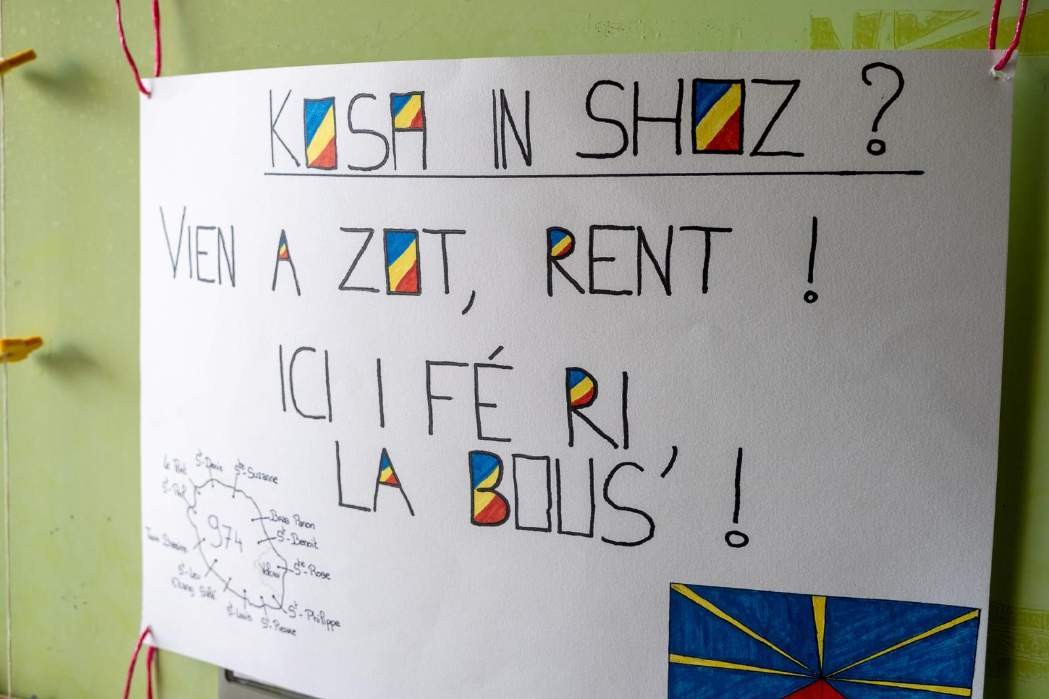 KOSA IN SHOZ ?
VIEN A ZOT, RENT !
ICI I FÉ RI
LA BOUS' !
Le Port
St-Denis
Ste-Suzanne
St-Paul
974
Bras Panon
St-Benoit
Trois Bassins
Volcan
Ste-Rose
St-Leu
Etang Salé
St-Louis
St-Pierre
St-Philippe